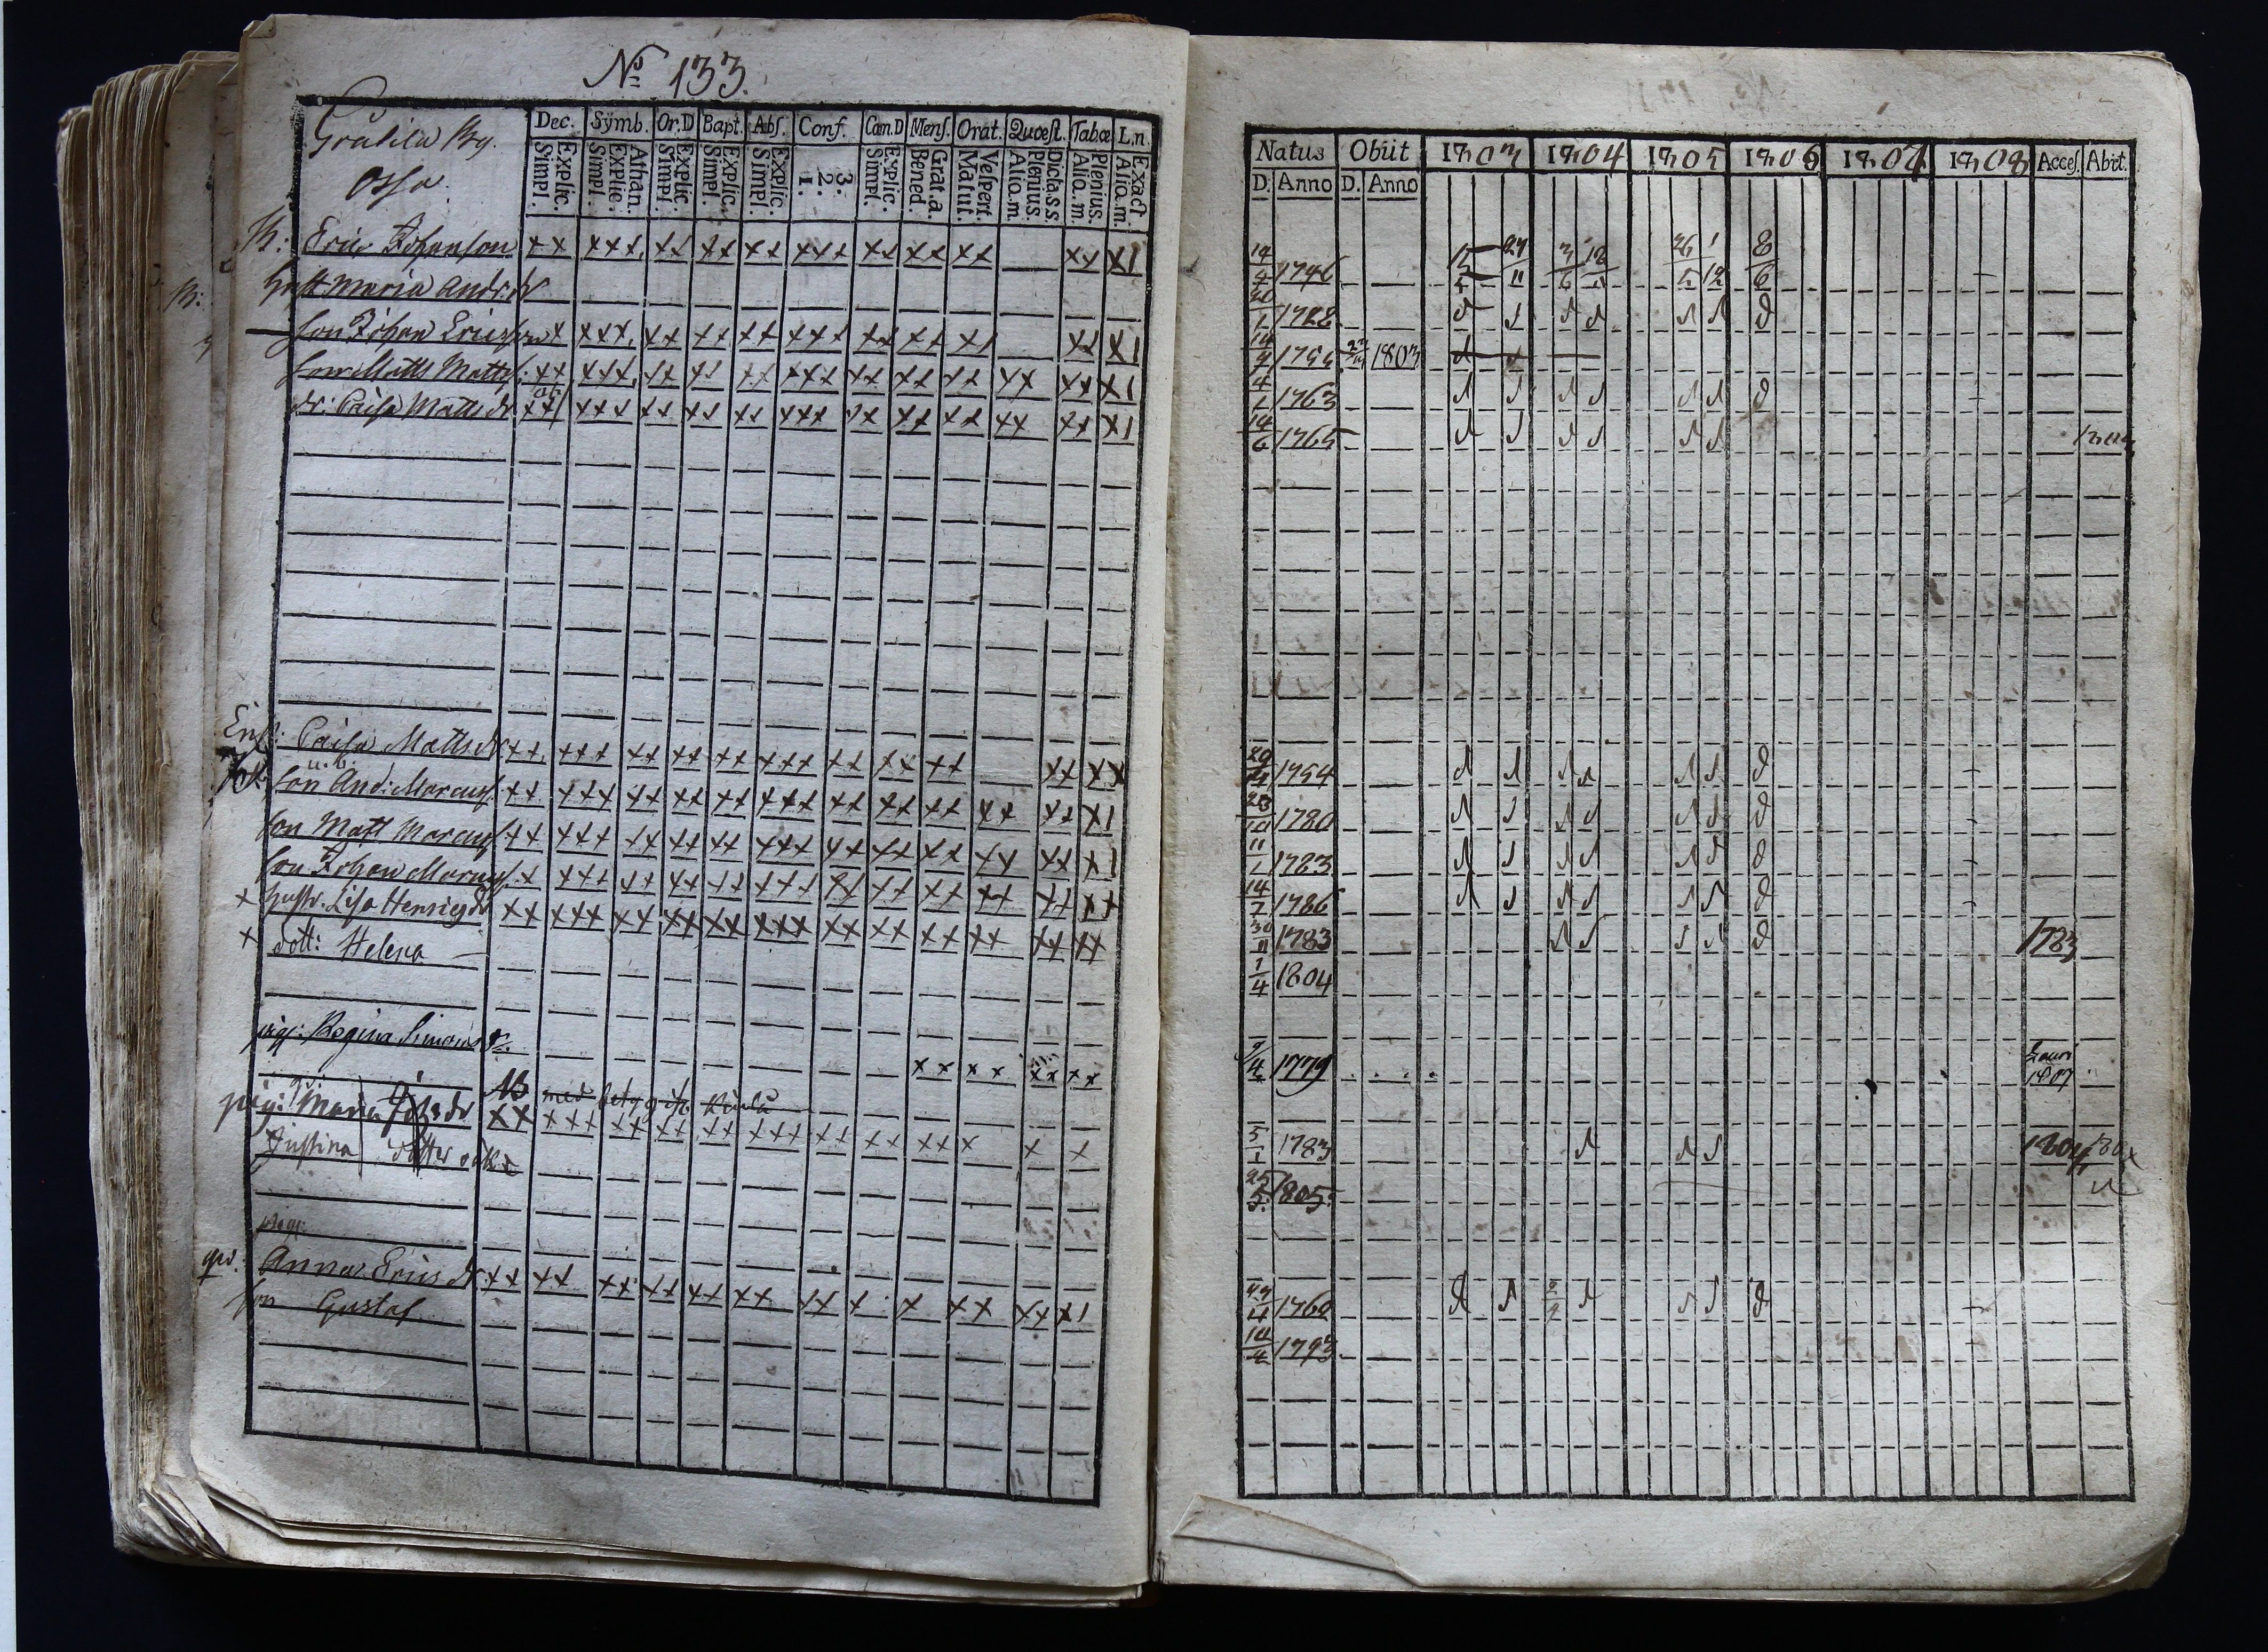 No 133.
Gråbila By.
Ossa.
Dec. Symb. Or.D Bapt. Abs. Conf. Cœn.D Mens. Orat. Quœst. Tabœ L.n.
Simpl. Explic. Simpl. Explic. Athan. Simpl. Explic. Simpl. Explic. Simpl. Explic. 1. 2. 3. Simpl. Explic. Bened. Grat.a. Matut. Vespert. Alio.m. Plenius. Dicta.s.s. Alio.m. Plenius. Alio.m. Exact
B: Eric Johanson xx xxx xx xx xx xxx xx xx xx xx x1
Hust Maria And:dr
son Johan Ericson x xxx xx xx xx xxx xx xx xx xx x1
Matts Matts: xx xxx xx xx xx xxx xx xx xx xx xx x1
dr: Caisa Mattsdr xx xxx xx xx xx xxx xx xx xx xx xx x1
Enk: Caisa Mattsdr xx xxx xx xx xx xxx xx xx xx xx xx
son And: Marcuss. xx xxx xx xx xx xxx xx xx xx xx xx x1
son Matt Marcuss. xx xxx xx xx xx xxx xx xx xx xx xx x1
son Johan Marcuss. x xxx xx xx xx xxx xx xx xx xx xx xx
x hustr. Lisa Henricsdr xx xxx xx xx xx xxx xx xx xx xx xx xx
x dott: Helena
pig: Regina Simonsdr. xx xx xx xx
pig: Maria Joh:dr xx xxx xx xx xx xxx xx xx xx x x x
Justina dotter oäkt
pig:
Anna Ericsdr xx xx xx xx xx xx xx x x xx xx x1
son Gustaf
Natus Obiit 1803 1804 1805 1806 1807 1808 Acces. Abiit.
D. Anno D. Anno
14/4 1746 24/11 3/6 26/5 1/12 8/6
1728
1755 1803
4/1 1763
14/6 1765
1754
1780
11/1 1783
14/7 1786
30/11 1783 1783
1/4 1804
9/4 1779 1807
5/1 1783 1804
25/5 1805.
1760
14/4 1793